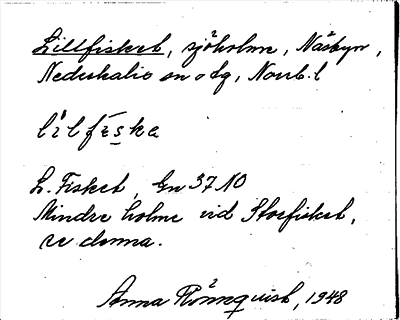 Lillfisket, sjöholme, Näsbyn,
Nederkalix sn o dg, Norrb. l
lìlfiska
L. Fisket, Gn 37 NO
Mindre holme vid Storfisket,
se denna.
Anna Rönnquist, 1948